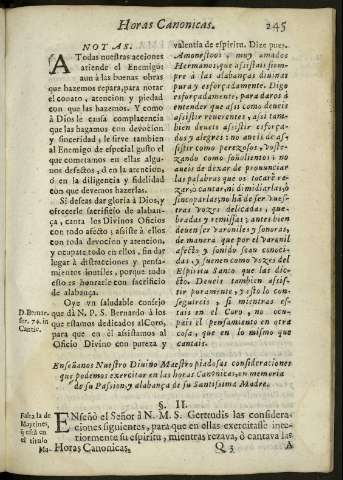 Horas Canonicas.
245
NOTAS.
A Todas nuestras acciones
atiende el Enemigo:
aun à las buenas obras
que hazemos repara, para notar
el conato, atencion y piedad
con que las hazemos. Y como
à Dios le causa complacencia
que las hagamos con devocion
y sinceridad, le sirve tambien
al Enemigo de especial gusto el
que cometamos en ellas algu-
nos defectos, ó en la atencion,
ó en la diligencia y fidelidad
con que devemos hazerlas.
Si deseas dar gloria à Dios, y
ofrecerle sacrificio de alaban-
ça, canta los Divinos Oficios
con todo afecto; assiste à ellos
con toda devocion y atencion,
y ocupate todo en ellos, sin dar
lugar à distracciones y pensa-
mientos inutiles, porque todo
esso es honrarle con sacrificio
de alabança.
Oye vn saludable consejo
que dà N. P. S. Bernardo à los
que estamos dedicados al Coro,
para que en èl assistamos al
Oficio Divino con pureza y
D. Bernar.
ser. 74. in
Cantic.
valentia de espiritu. Dize pues.
Amonestoos, muy amados
Hermanos, que assistais siem-
pre à las alabanças divinas
pura y esforçadamente. Digo
esforçadamente, para daros à
entender que assi como deueis
assistir reuerentes, assi tam-
bien deueis assistir esforça-
dos y alegres: no aueis de as-
sistir como perezosos, bosteº
zando como soñolientos: no
aueis de dexar de pronunciar
las palabras que os tocarè re-
zar, o cantar, ni dimidiarlas, ò
sincoparlas, no hà de ser vues-
tras vozes delicadas, que-
bradas y remissas; antes bien
deuen ser varoniles y sonoras,
de manera que por el varonil
afecto y sonido sean conoci-
das, y suenen como vozes del
Espiritu Santo que las dic-
tò. Deueis tambien assis-
tir puramente, y esto lo con-
seguireis, si mientras es-
tais en el Coro, no ocu-
pais el pensamiento en otra
cosa, que en lo mismo que
cantais.
Enseñanos Nuestro Divino Maestro piadosas consideraciones
que podemos exercitar en las horas Canonicas, en memoria
de su Passion, y alabança de su Santissima Madre.
§. II.
Falta la de
Maytines,
q̃ està en
el titulo
Ma-
ENseñò el Señor à N. M. S. Gertrudis las considera-
ciones siguientes, para que en ellas exercitasse inte-
riormente su espiritu, mientras rezava, ó cantava las
Horas Canonicas.
Q 3
A